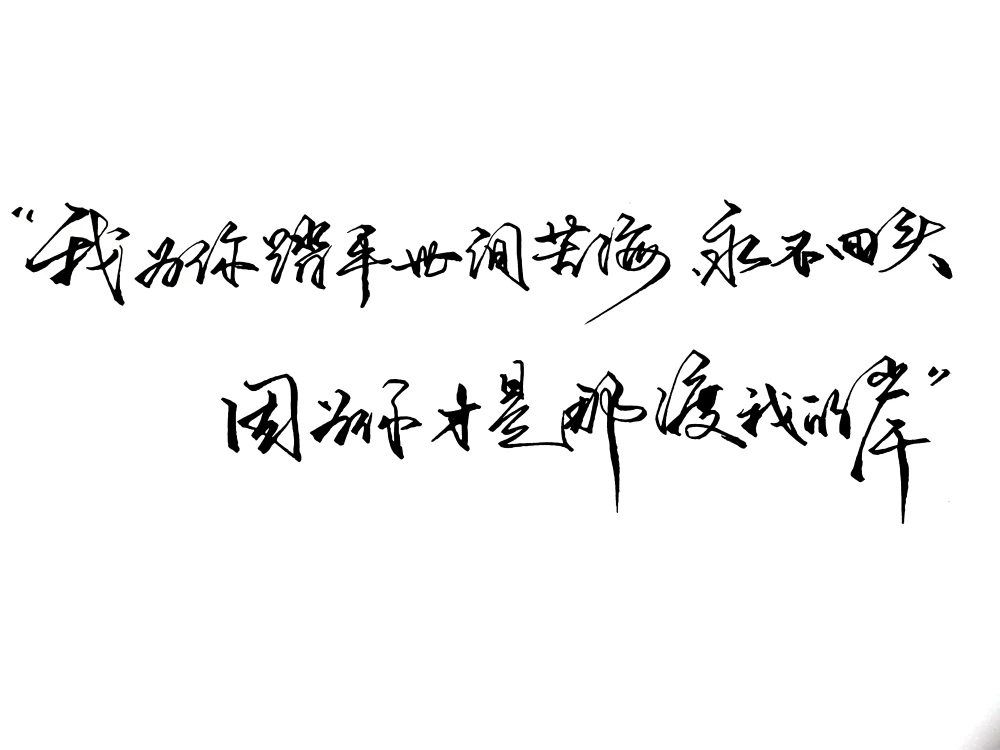 “我为你踏平世间苦海 永不回头
因为你才是那渡我的岸”